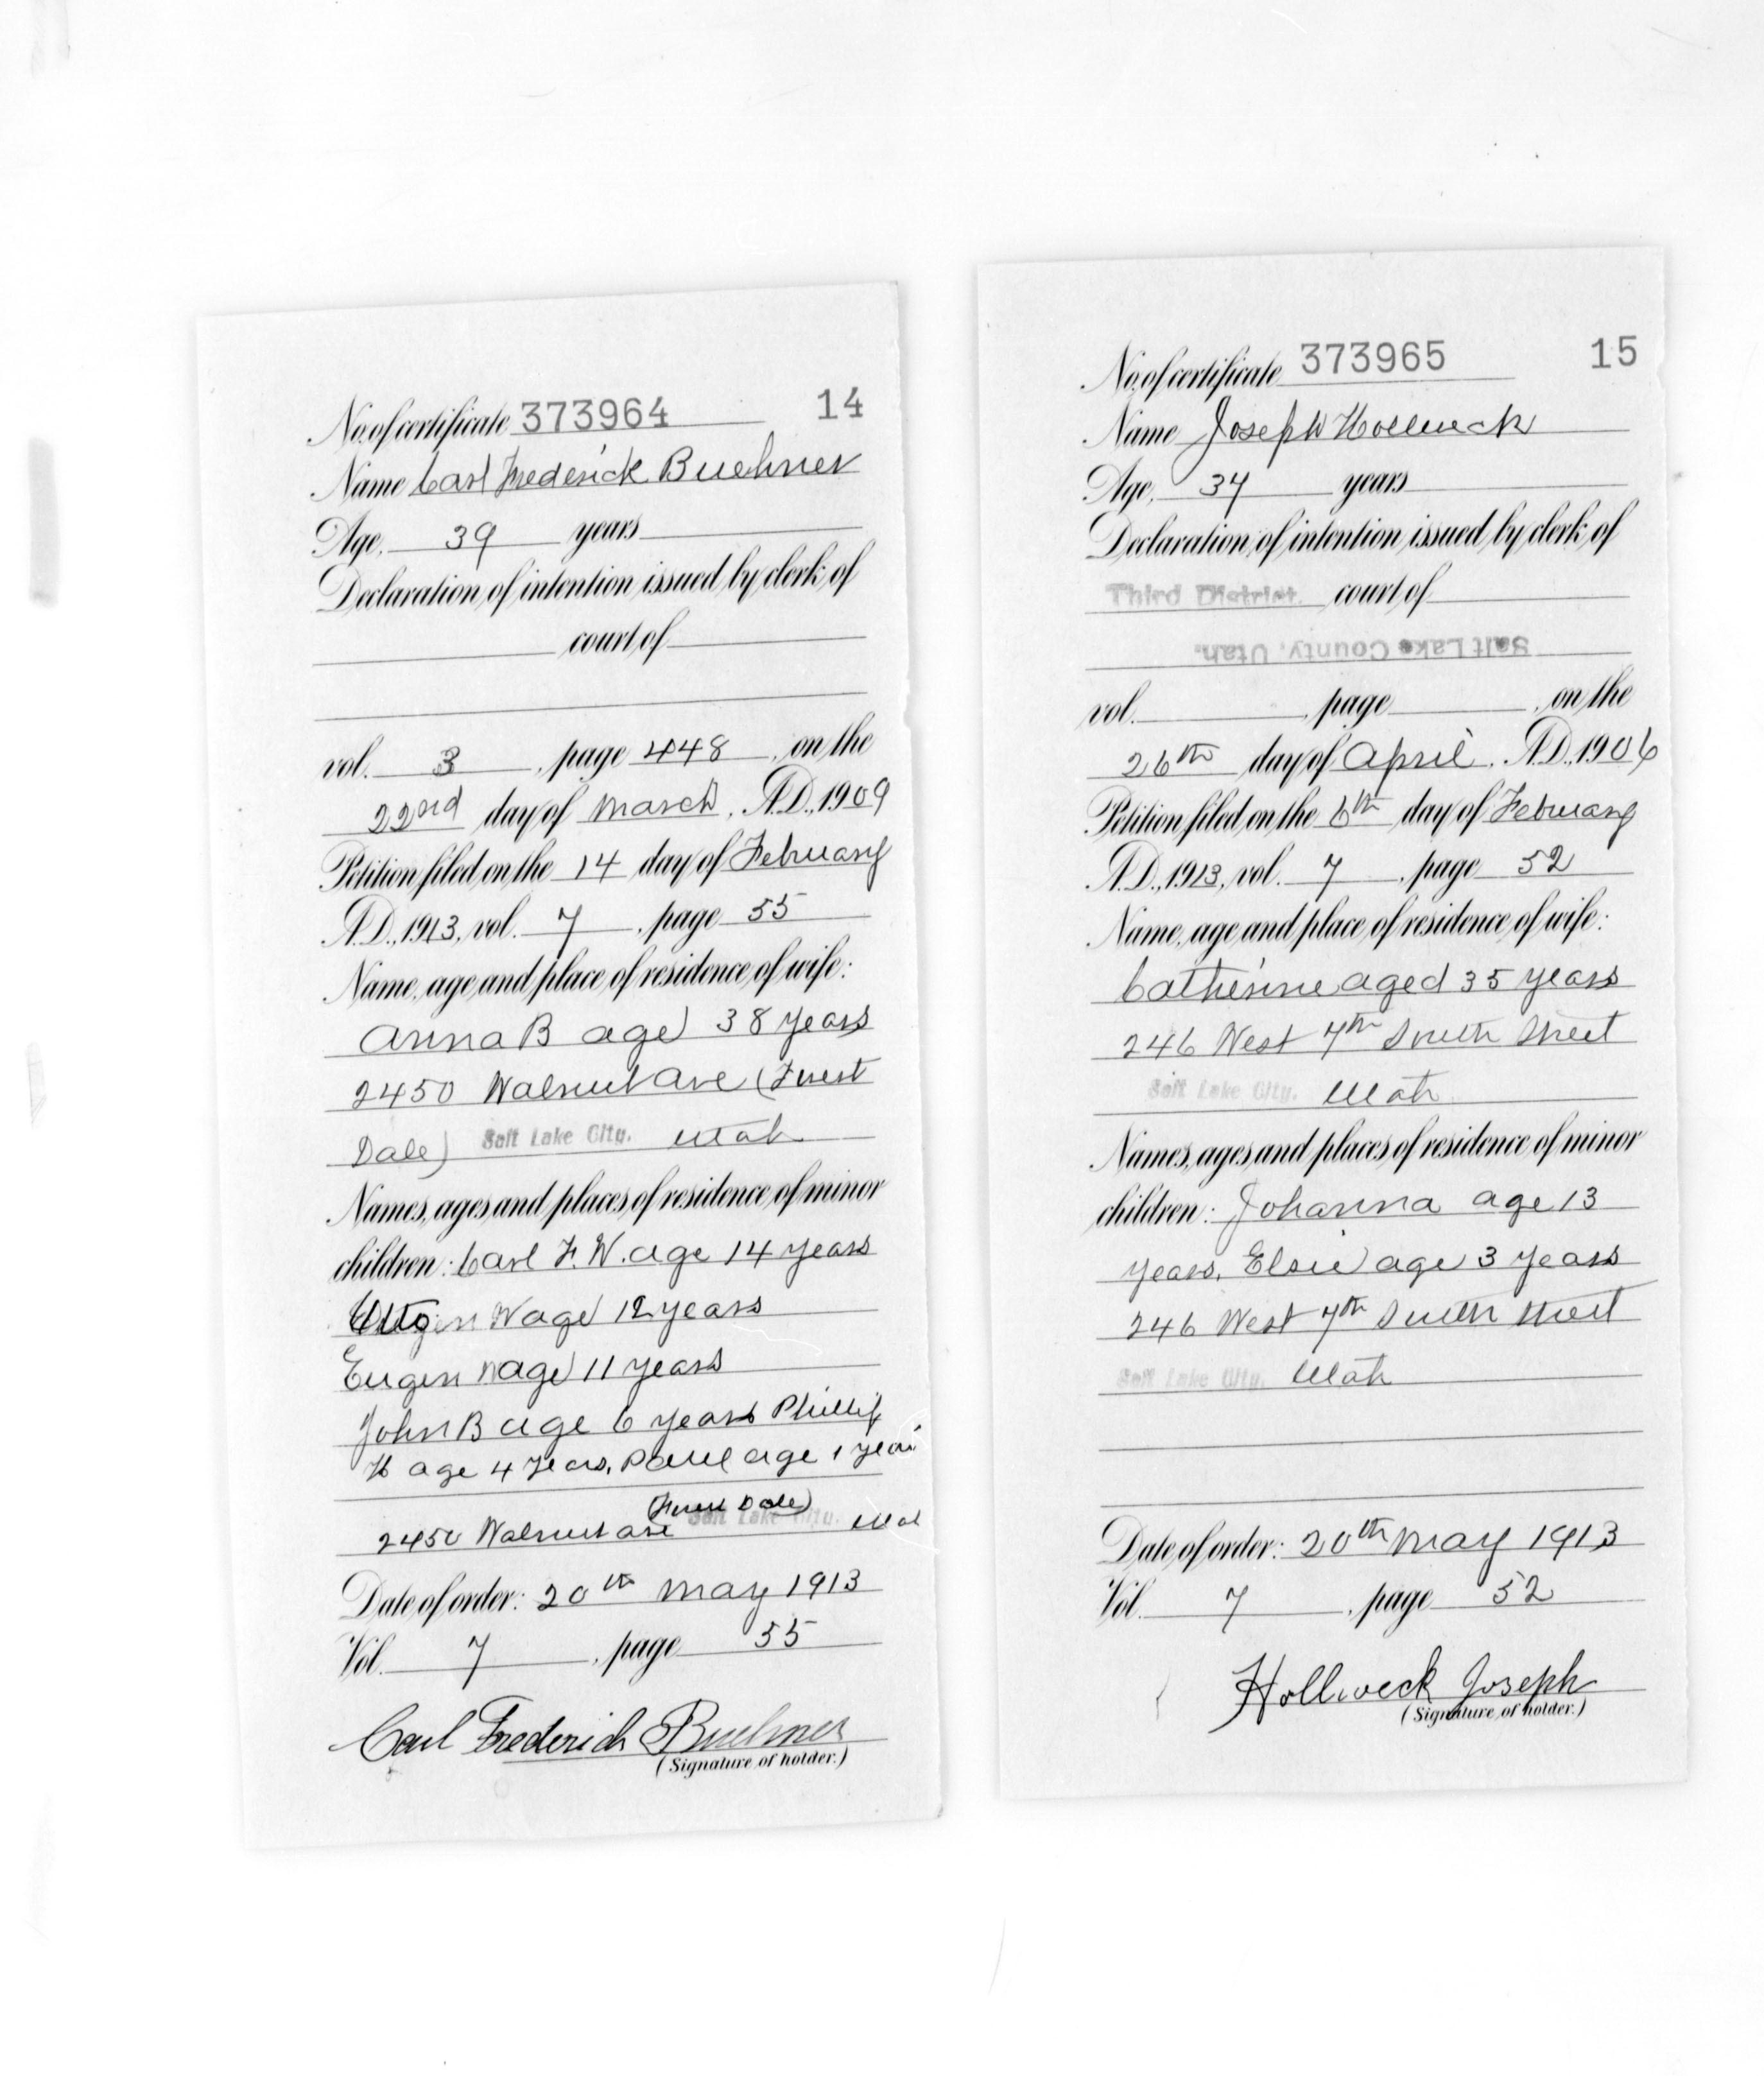 No. of certificate 373964 14
Name Carl Frederick Buehner
Age, 39 years
Declaration of intention issued by clerk of
court of
vol. 3, page 448, on the
22nd day of March, A.D. 1909
Petition filed on the 14 day of February
A.D., 1913, vol. 7, page 55
Name, age and place of residence of wife:
Anna B age 38 years
2450 Walnut Ave (Forest
Dale) Salt Lake City. Utah
Names, ages and places of residence of minor
children: Carl F. W. age 14 years
W age 12 years
Eugen W age 11 years
John B age 6 years Phillip
H age 4 years, Paul age 1 year
(Forest Dale)
2450 Walnut ave Salt Lake City. Utah
Date of order: 20th May 1913
Vol. 7, page 55
Carl Frederich Buehner
(Signature of holder.)
No. of certificate 373965 15
Name Joseph Hollweck
Age, 37 years
Declaration of intention issued by clerk of
Third District court of
Salt Lake County, Utah.
vol. , page , on the
26th day of April, A.D., 1906
Petition filed on the 6th day of February
A.D., 1913, vol. 7, page 52
Name, age and place of residence of wife:
Catherine aged 35 years
246 West 7th South Street
Salt Lake City. Utah
Names, ages and places of residence of minor
children: Johanna age 13
years, Elsie age 3 years
246 West 7th South Street
Salt Lake City. Utah
Date of order: 20th May 1913
Vol. 7, page 52
Hollweck Joseph
(Signature of holder.)